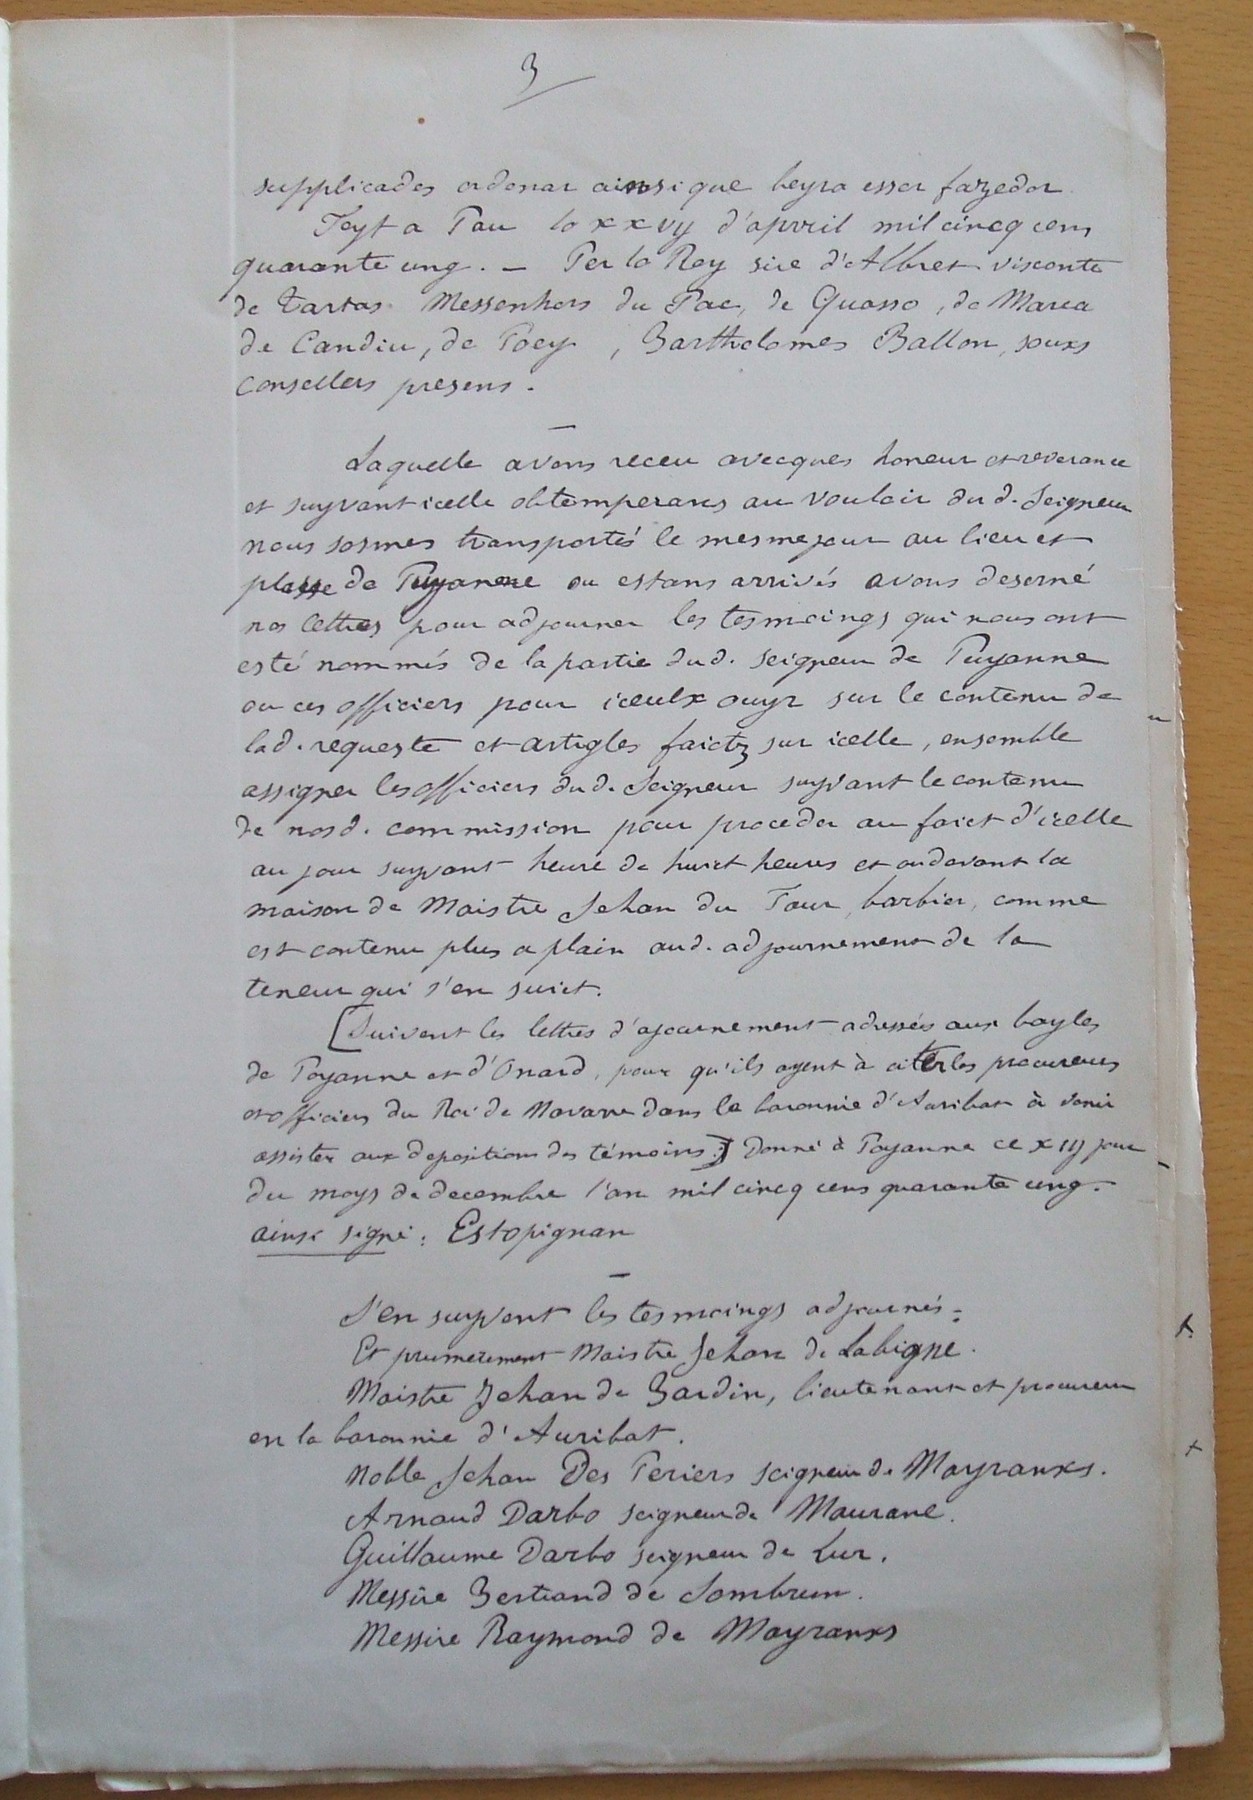 3
supplicades ordenar ainsi que beyra esser fazedor
Feyt a Pau lo xxvij d'apvril mil cincq cens
quarante ung. - Per lo Rey sire d'Albret visconte
de Tartas. Messenhors du Pac, de Quasso, de Marca
de Candiu, de Poey, Bartholomes Ballon, souxs
consellers presens.
Laquelle avons receu avecques honeur et reverance
et suyvant icelle obtemperans au vouloir dud. Seigneur
nous sosmes transportés le mesme jour au lieu et
plasse de Puyanne ou estans arrivés avons deserné
nos lettres pour adjourner les tesmoings qui nous ont
esté nommés de la partie dud. seigneur de Puyanne
ou ces officiers pour iceulx ouyr sur le contenu de
lad. requeste et artigles faictz sur icelle, ensemble
assigner les officiers dud. Seigneur suyvant le contenu
de nosd. commission pour proceder au faict d'icelle
au jour suyvant heure de huict heures et au davant la
maison de Maistre Jehan du Four, barbier, comme
est contenu plus a plain aud. adjournement de la
teneur qui s'en suict.
[Suivent les lettres d'ajournement adressés aux bayles
de Poyanne et d'Onard, pour qu'ils ayent à citer les procureurs
et officiers du Roi de Navarre dans la baronnie d'Auribat à venir
assister aux depositions des témoins:] Donné à Poyanne ce xiij jour
du moys de decembre l'an mil cincq cens quarante ung.
ainsi signé: Estopignan
S'en suyvent les tesmoings adjournés:
Et prumerement Maistre Jehan de Labigne.
Maistre Jehan de Bardin, lieutenant et procureur
en la baronnie d'Auribat.
Noble Jehan Des Periers seigneur de Mayranxs.
Arnaud Darbo seigneur de Maurane.
Guillaume Darbo seigneur de Lur.
Messire Bertrand de Sombrun.
Messire Raymond de Mayranxs